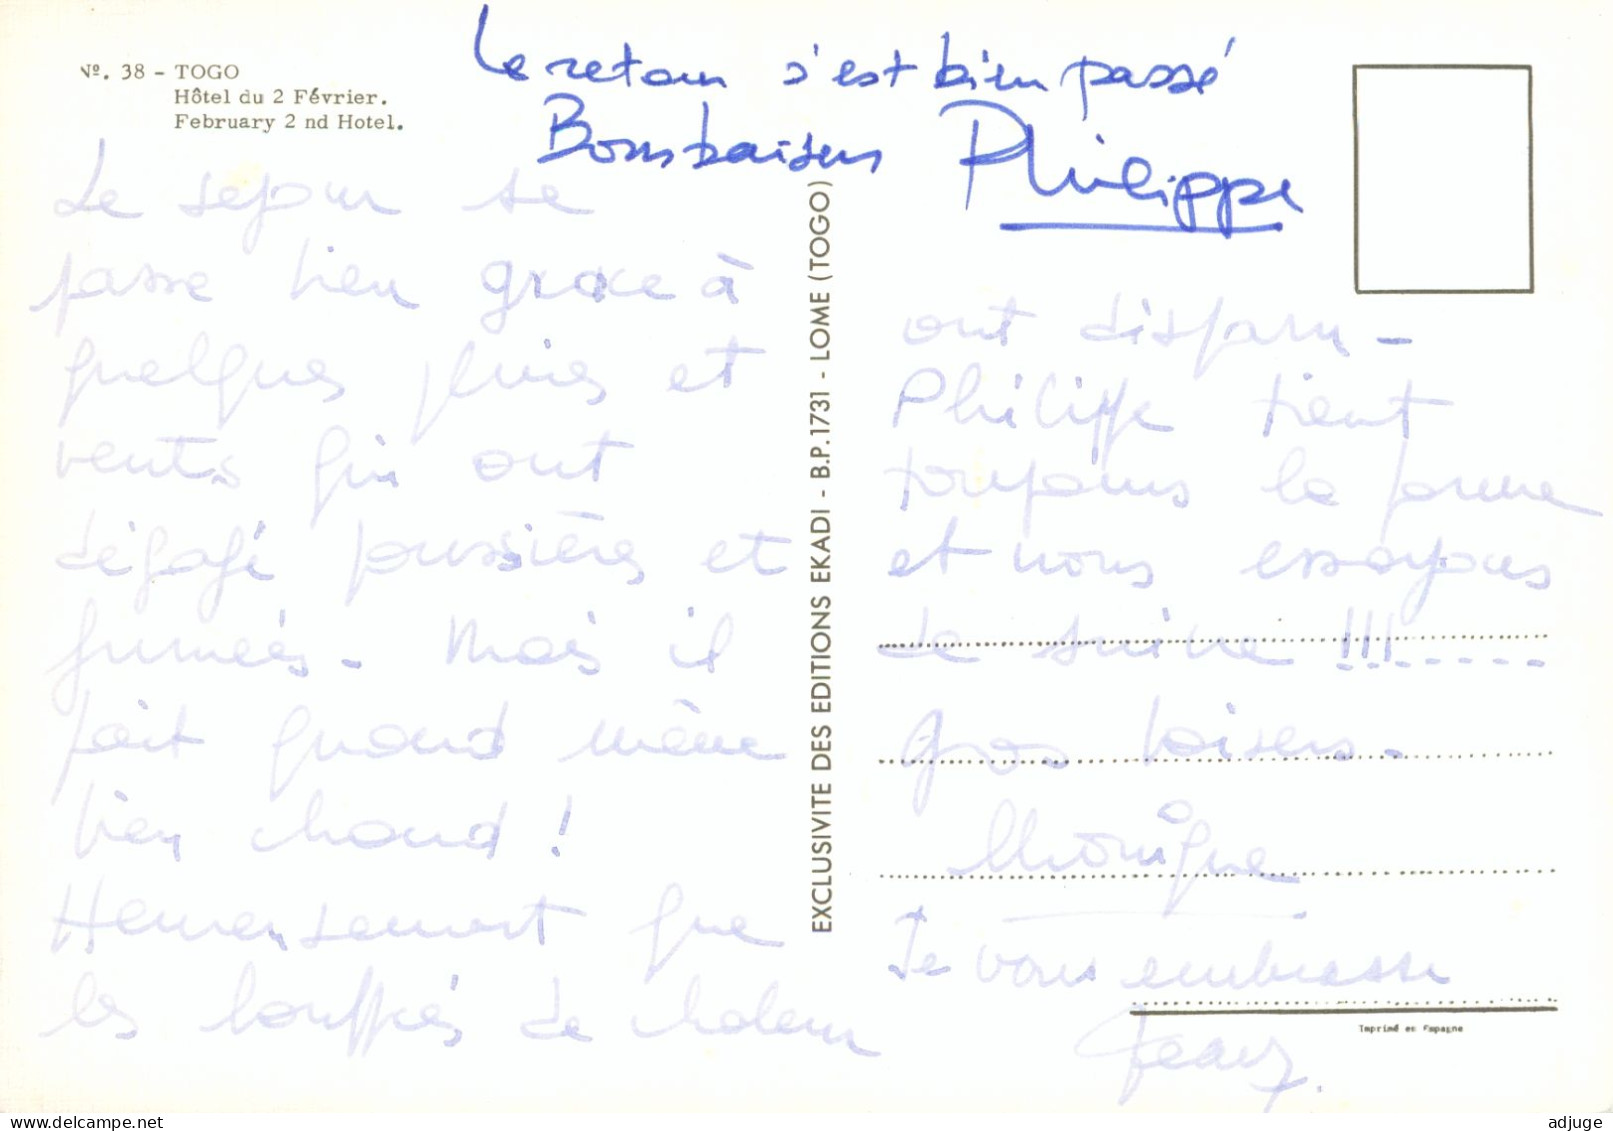 Nº. 38 - TOGO
Hôtel du 2 Février.
February 2 nd Hotel.
Le retour s'est bien passé
Bons baisers Philippe
Le sejour se
passe bien grace à
quelques pluies et
vents qui ont
dégagé poussières et
fumées - Mais il
fait quand même
bien chaud !
Heureusement que
les bouffées de chaleur
ont disparu -
Philippe tient
toujours la forme
et nous essayons
de suivre !!!-----
Gros baisers -
Monique
Je vous embrasse
Jean
EXCLUSIVITE DES EDITIONS EKADI - B.P.1731 - LOME (TOGO)
Imprimé en Espagne
© adjuge.com